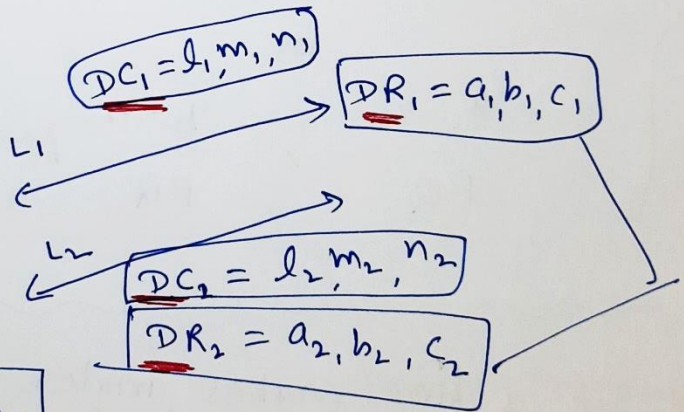 DC₁ = l₁, m₁, n₁
DR₁ = a₁, b₁, c₁
L1
L2
DC₂ = l₂, m₂, n₂
DR₂ = a₂, b₂, c₂